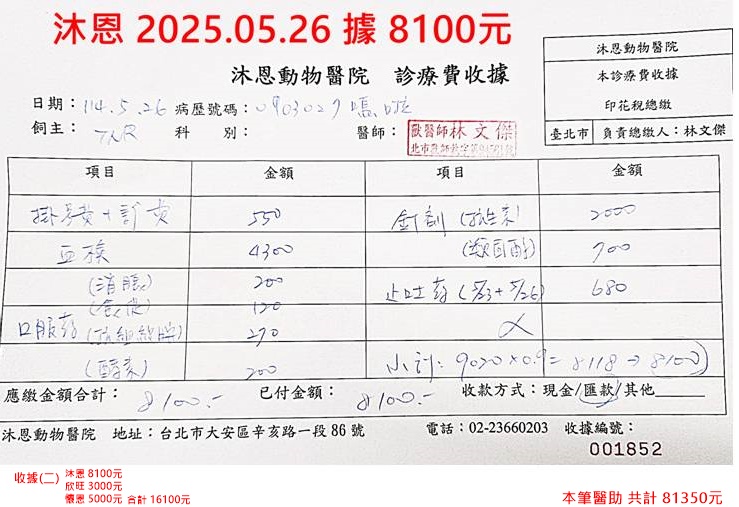 沐恩 2025.05.26 據 8100元
沐恩動物醫院
沐恩動物醫院 診療費收據
本診療費收據
印花稅總繳
臺北市 負責總繳人：林文傑
日期：114.5.26 病歷號碼：0903027
飼主：TNR 科 別： 醫師：獸醫師林文傑
項目 金額 項目 金額
掛号費+診費 550 針劑(抗生素) 2000
血檢 4300 (類固醇) 700
(消脹) 200 止吐药(5/23+5/26) 680
120
口服药 270
(酵素) 200 小計：9020×0.9=8118→8100
應繳金額合計：8100.- 已付金額：8100.- 收款方式：現金/匯款/其他
沐恩動物醫院 地址：台北市大安區辛亥路一段86號 電話：02-23660203 收據編號：
001852
收據(二) 沐恩 8100元
欣旺 3000元
懷恩 5000元 合計 16100元
本筆醫助 共計 81350元